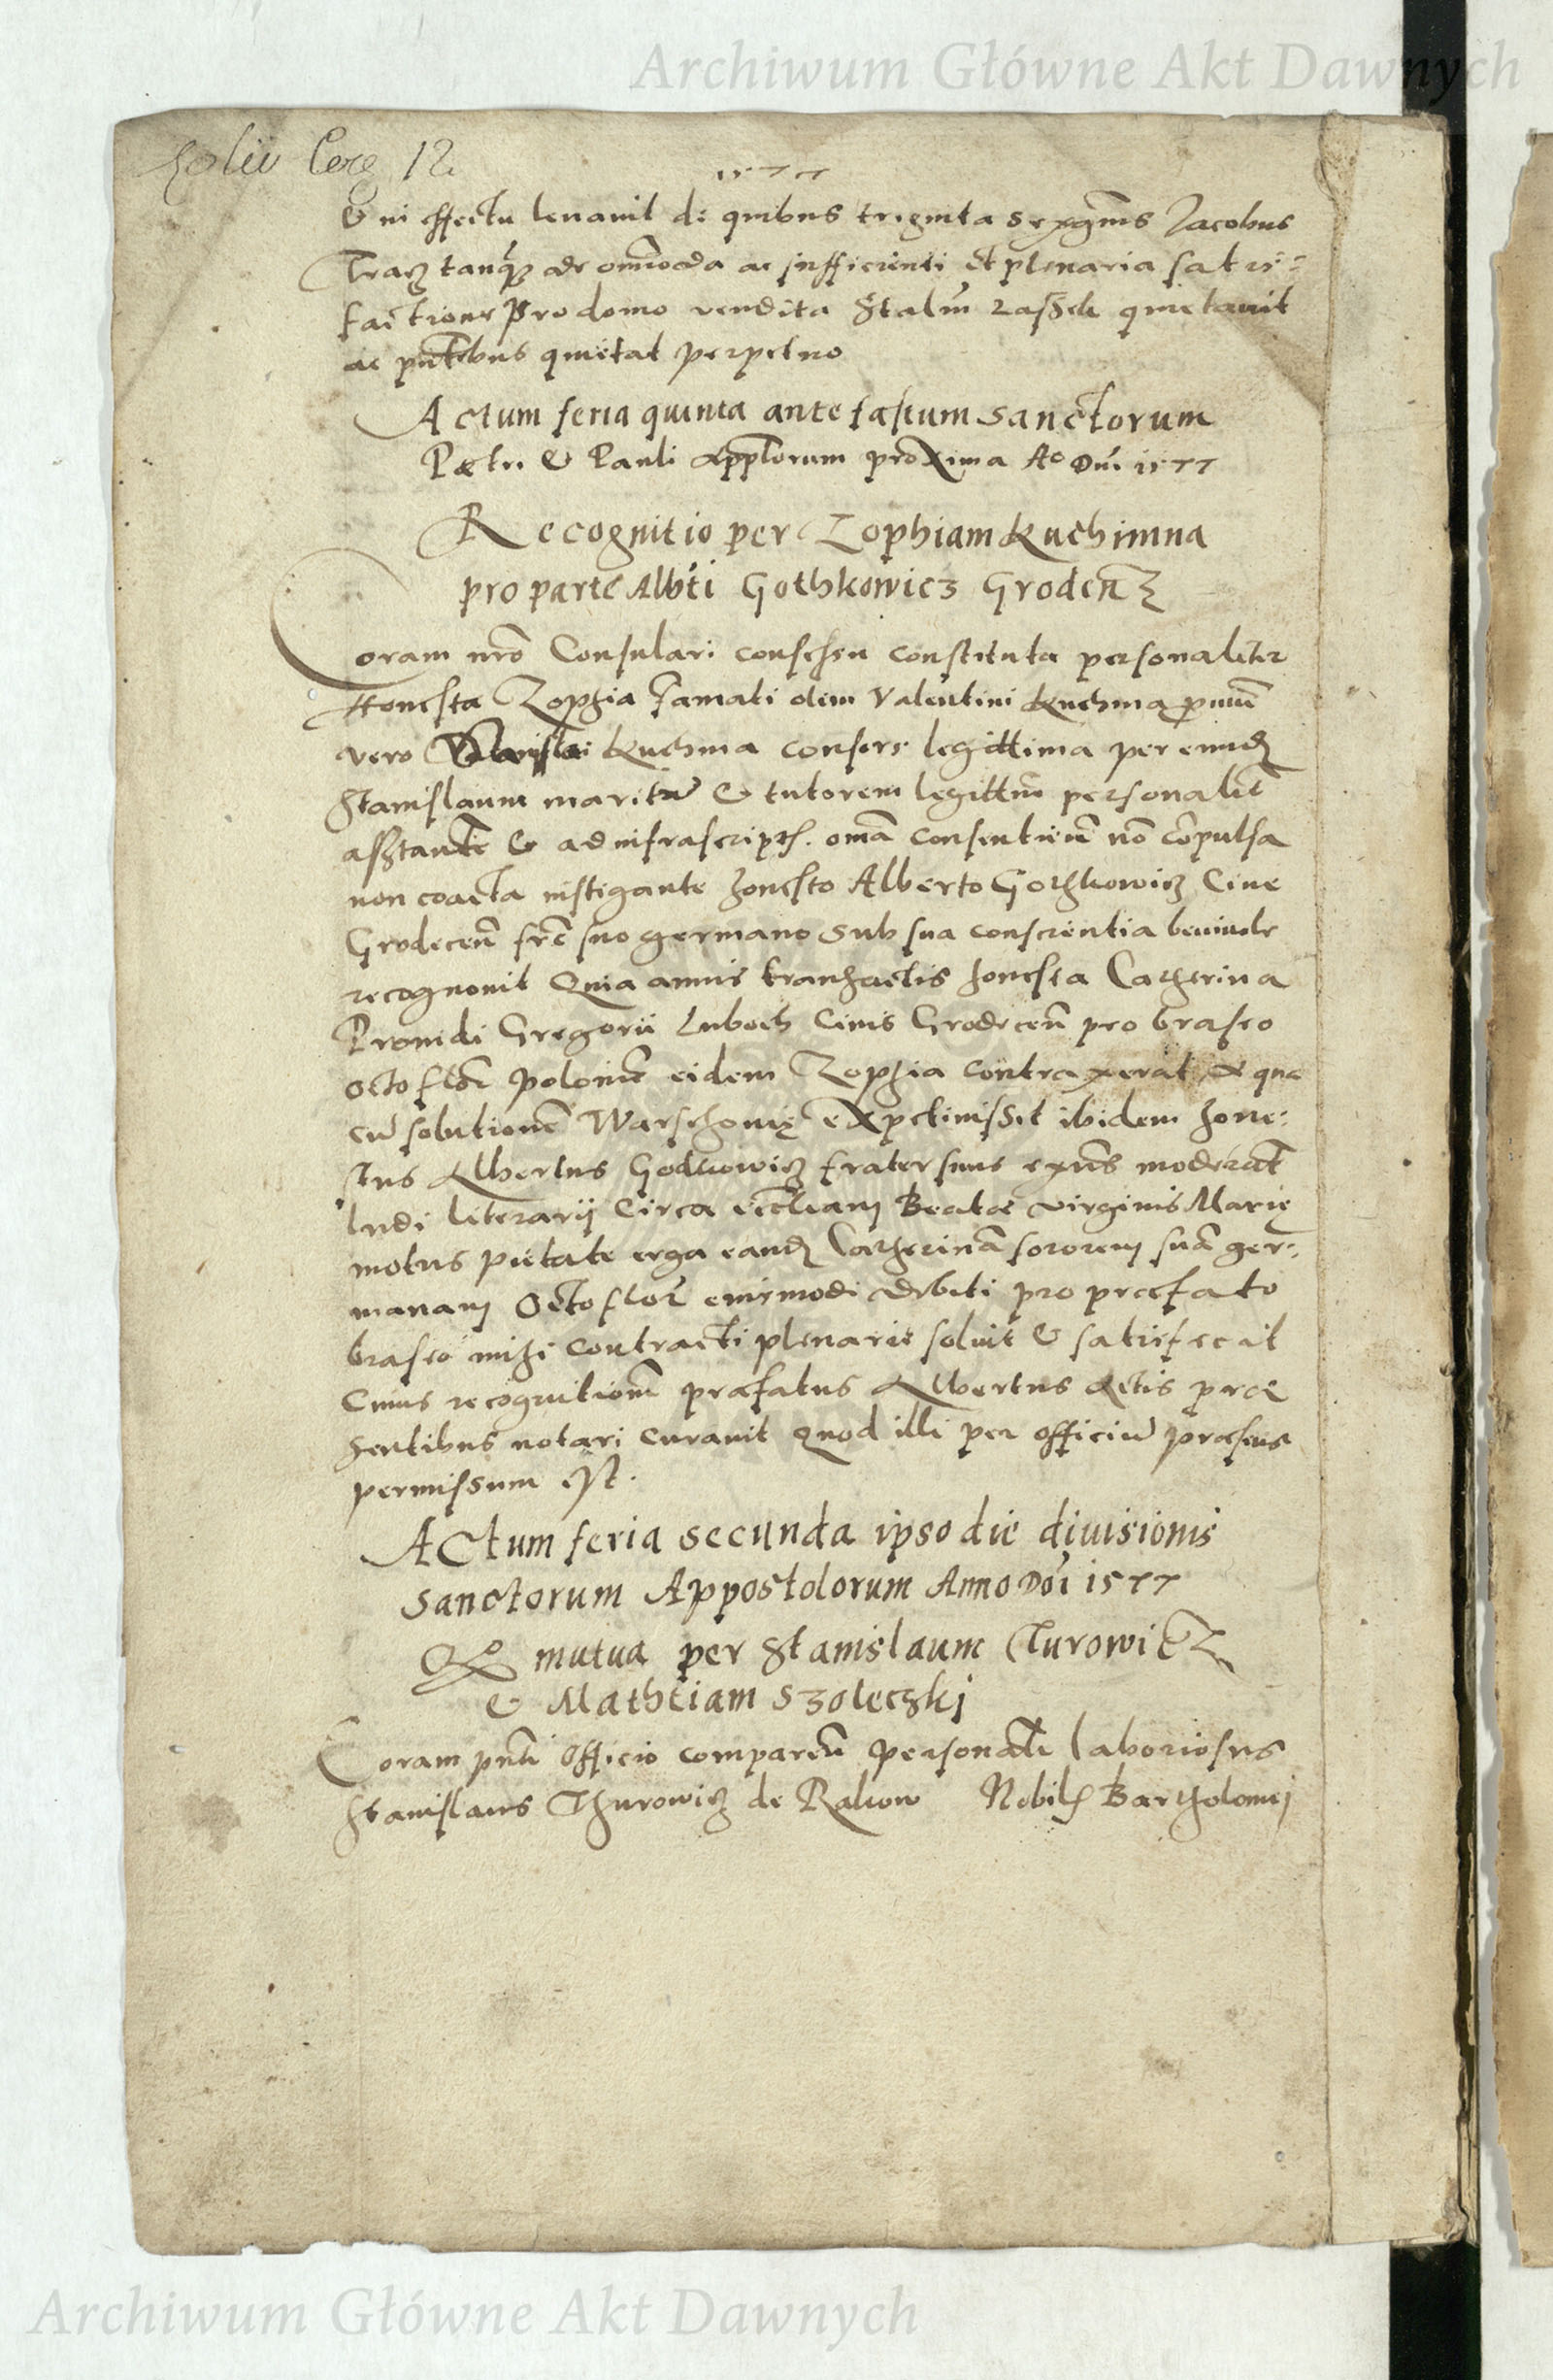 Archiwum Główne Akt Dawnych
12
1577
& in effectu levavit de quibus triginta sexgenis Jacobus
Tracz tanq̃ de omnioda ac sufficienti et plenaria satis=
factione pro domo vendita quietavit
ac pñtibus quietat perpetuo
Actum feria quinta ante fastum sanctorum
Petri & Pauli Applorum proxima Ao Dni 1577
Recognitio per Zophiam Kuchimna
pro parte Albti Gothkowicz Groden
Coram nro Consulari consessu constituta personaliter
Honesta Zophia famati olim Valentini Kuchma
vero Kuchma consors legittima per eund
Stanislaum maritu & tutorem legittm personalit
asstante & ad infrascripta omnia consentiente no copulsa
non coacta instigante honesto Alberto Gothkowicz Cive
Grodecen fre suo germano sub sua conscientia benivole
recognovit Quia annis transactis honesta Catherina
Providi Gregorii Luboch Civis Grodecen pro braseo
octo flor polonic eidem Zophia contraxerat A qua
cu solutione Warschovię expetivisset ibidem hone=
stus Albertus Godkowicz frater suus exns moderat
ludi literarij circa eccleam Beatæ virginis Marię
motus pietate erga eand Catherina sororem sua ger=
manam octo flor eiusmodi debiti pro præfato
braseo mihi contracti plenarie solvit & satisfecit
Cuius recognitione præfatus Albertus Actis præ
sentibus notari curavit quod illi per officiu præsens
permissum est.
Actum feria secunda ipso die divisionis
sanctorum Appostolorum Anno Doi 1577
mutua per Stanislaum Turowicz
& Mathiam Szoleczki
Coram pnti officio comparen personalt laboriosus
Stanislaus Thurowicz de Rakow Nobil Bartholomei
Archiwum Główne Akt Dawnych